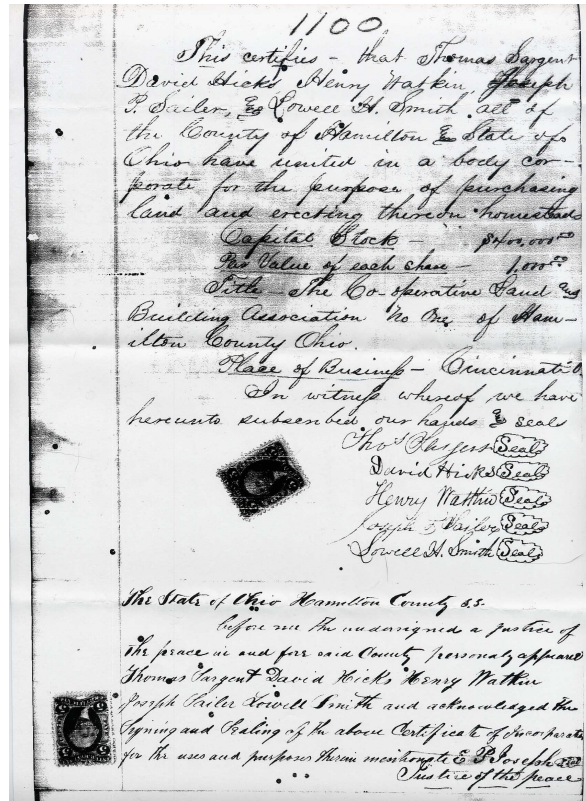 1100
This certifies - that Thomas Sargent
David Hicks, Henry Watkin, Joseph
P. Sailer, & Lowell H. Smith all of
the County of Hamilton & State of
Ohio have united in a body cor-
porate for the purpose of purchasing
land and erecting thereon homesteads
Capital Stock - $400,000.00
Par Value of each share - 1,000.00
Title The Co-operative Land and
Building Association No One of Ham-
ilton County Ohio.
Place of Business - Cincinnati O.
In witness whereof we have
hereunto subscribed our hands & seals
Thos Sargent Seal
David Hicks Seal
Henry Watkin Seal
Joseph Sailer Seal
Lowell H. Smith Seal
The State of Ohio Hamilton County S.S.
before me the undersigned a Justice of
the peace in and fore said County personaly appeared
Thomas Sargent David Hicks Henry Watkin
Joseph Sailer Lowell Smith and acknowledged the
Signing and Sealing of the above Certificate of Incorporation
for the uses and purposes therein mentioned E P Joseph Seal
Justice of the peace